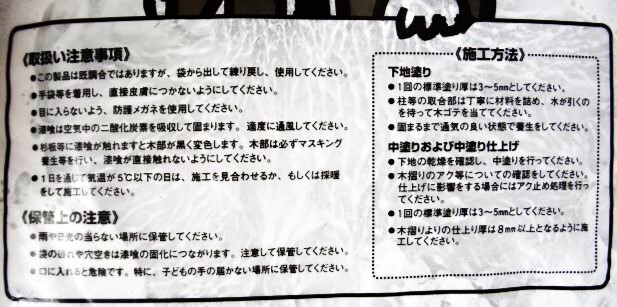 《取扱い注意事項》
●この製品は既調合ではありますが、袋から出して練り戻し、使用してください。
●手袋等を着用し、直接皮膚につかないようにしてください。
●目に入らないよう、防護メガネを使用してください。
●漆喰は空気中の二酸化炭素を吸収して固まります。適度に通風してください。
●杉板等に漆喰が触れますと木部が黒く変色します。木部は必ずマスキング
養生等を行い、漆喰が直接触れないようにしてください。
●1日を通じて気温が5℃以下の日は、施工を見合わせるか、もしくは採暖
をして施工してください。
《保管上の注意》
●雨や日光の当らない場所に保管してください。
●袋の破れや穴空きは漆喰の固化につながります。注意して保管してください。
●口に入れると危険です。特に、子どもの手の届かない場所に保管してください。
《施工方法》
下地塗り
●1回の標準塗り厚は3〜5mmとしてください。
●柱等の取合部は丁寧に材料を詰め、水が引くの
を待って木ゴテを当ててください。
●固まるまで通気の良い状態で養生をしてください。
中塗りおよび中塗り仕上げ
●下地の乾燥を確認し、中塗りを行ってください。
●木摺りのアク等についての確認をしてください。
仕上げに影響をする場合にはアク止め処理を行っ
てください。
●1回の標準塗り厚は3〜5mmとしてください。
●木摺りよりの仕上り厚は8mm以上となるように施
工してください。